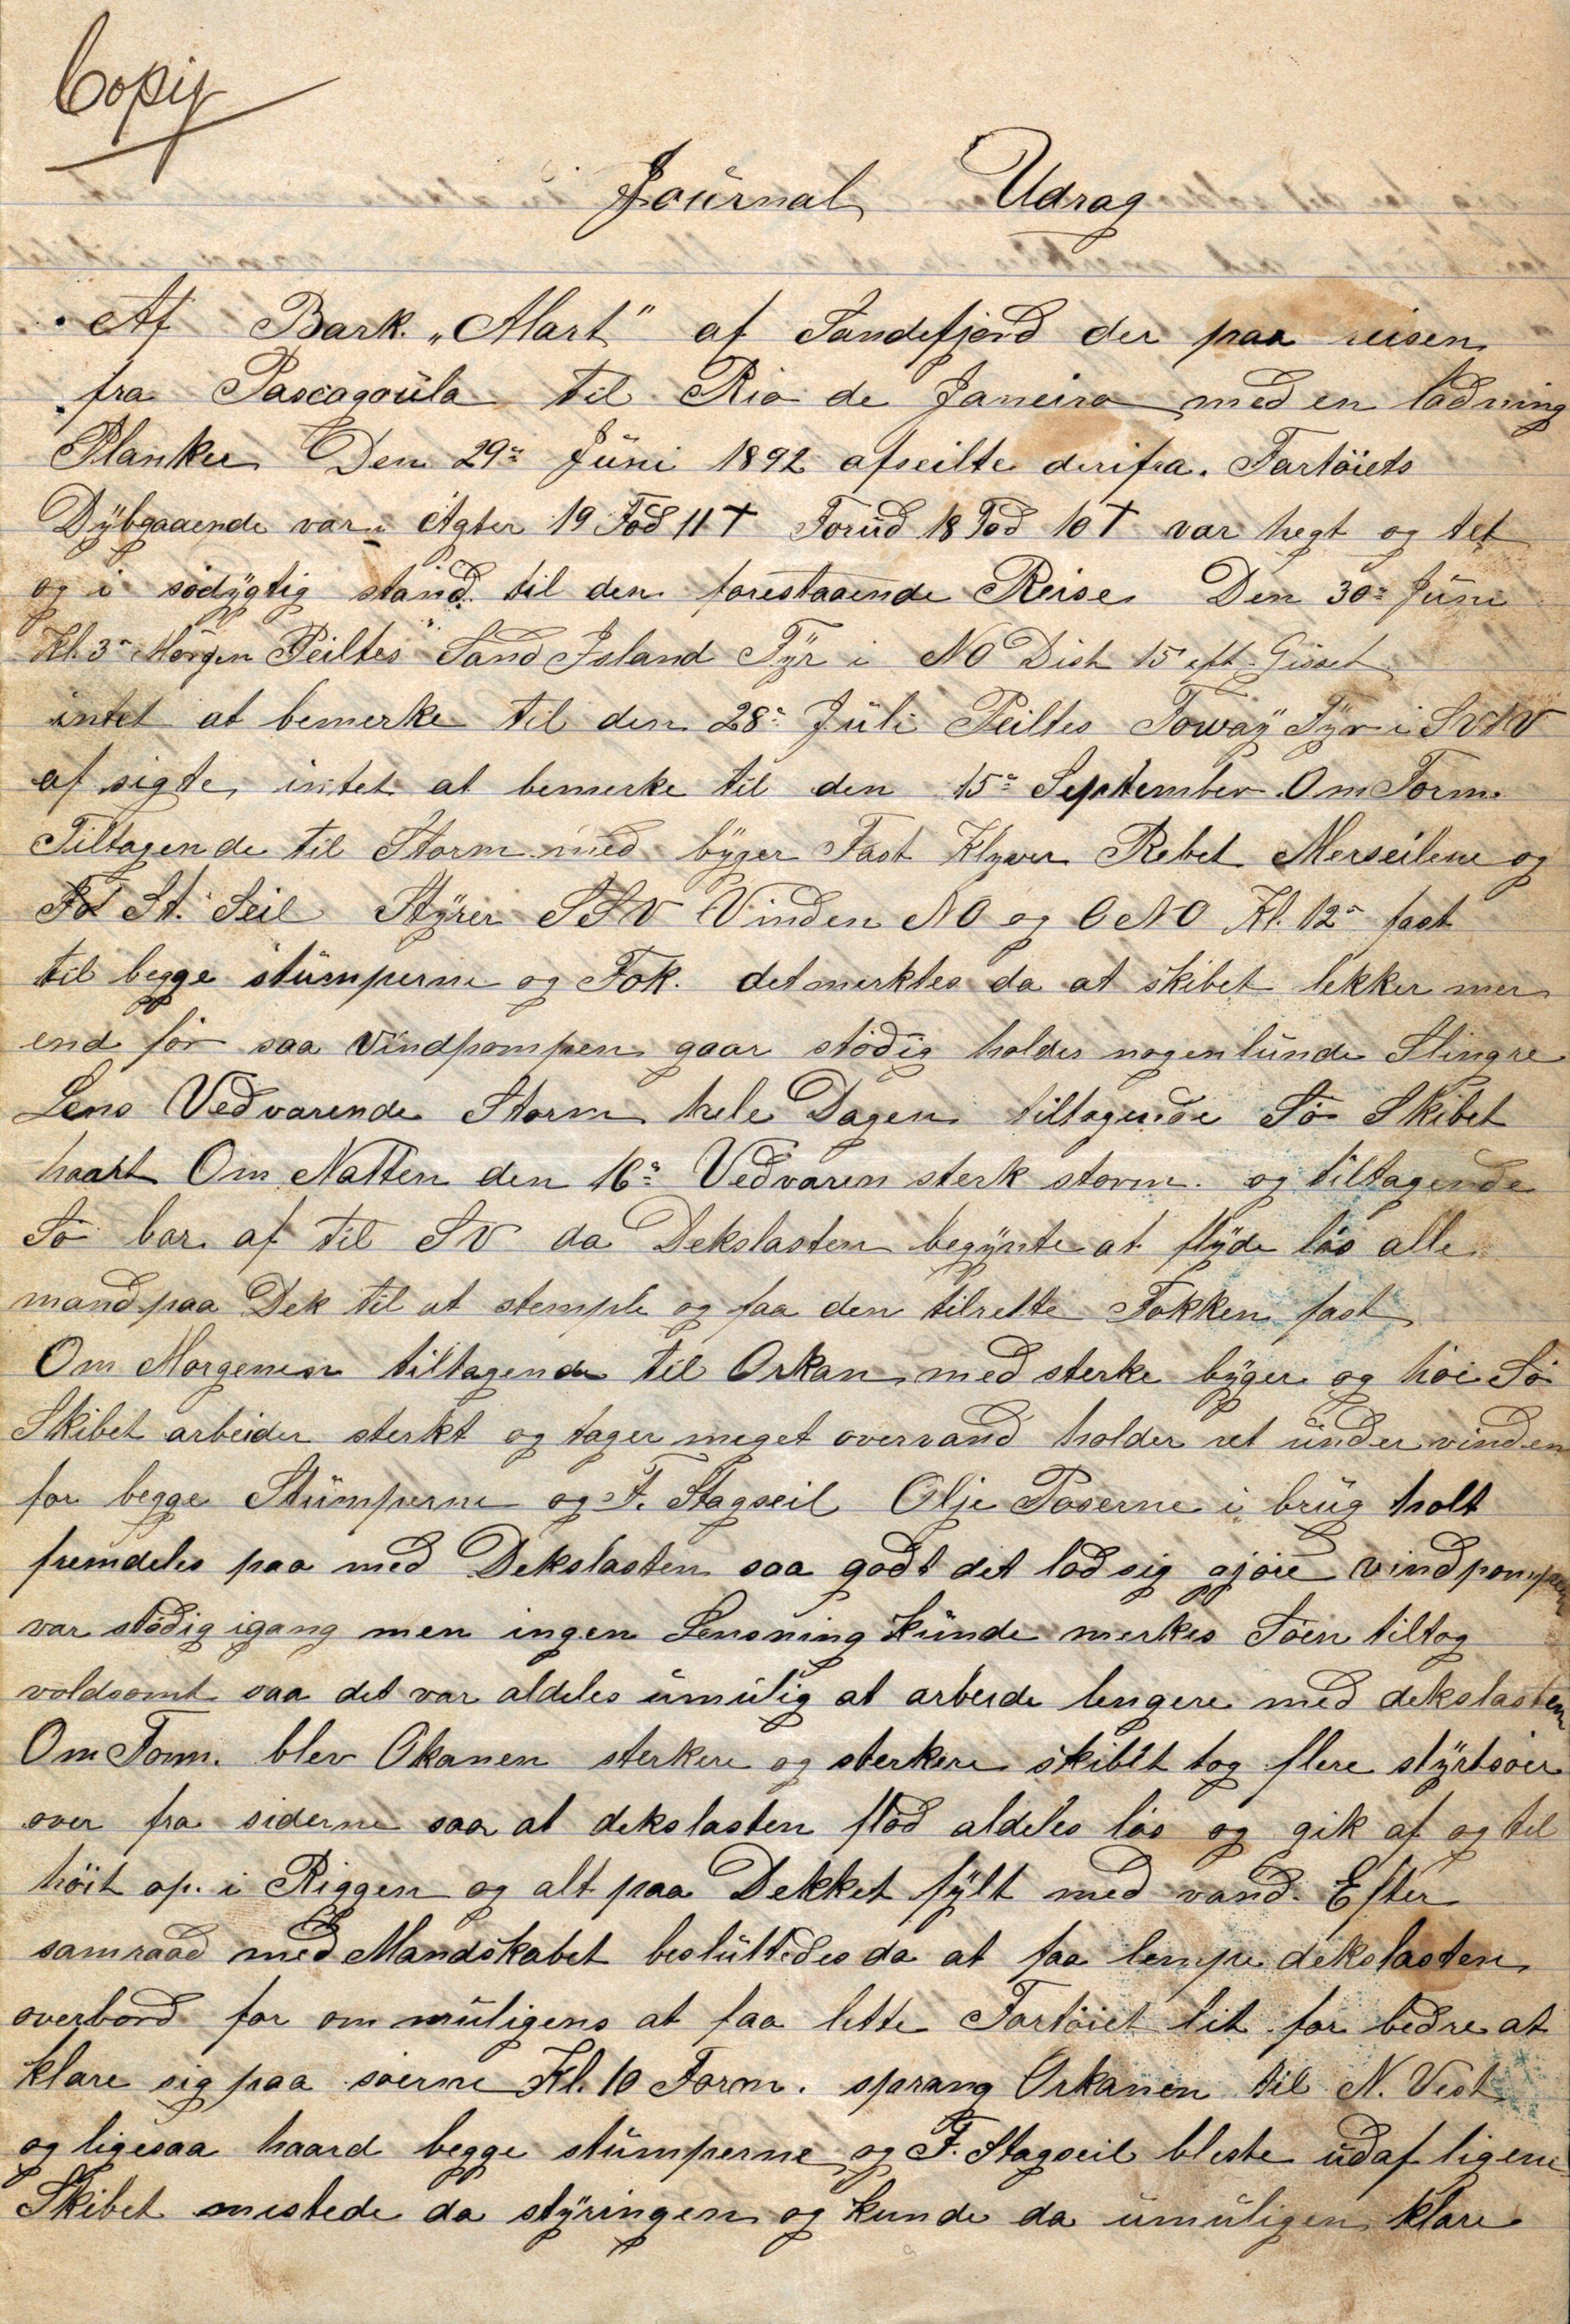 Copy
Journal Udrag
Af Bark. „Alart" af Sandefjord der paa reisen
fra Pascagoula til Rio de Janeiro med en ladning
Planker Den 29de Juni 1892 afseilte derifra. Fartöiets
Dybgaaende var Agter 19 Fod 11 T Forud 18 Fod 10 T var hegt og tet
og i södygtig stand til den forestaaende Reise Den 30de Juni
Kl. 3 Morgen Peiltes Sand Island Fyr i NO Dist 15
intet at bemerke til den 28de Juli Peiltes Fyr i
af sigte, intet at bemerke til den 15de September Om Form.
Tiltagende til Storm med byger Fast Klyver Rebet Merseilene og
St. Seil Styrer SSV Vinden NO og ONO Kl. 12 fast
til begge stumperne og Fok. det merktes da at skibet lekker mer
end för saa Vindpompen gaar stödig holdes nogenlunde Slingre
Lens Vedvarende Storm hele Dagen tiltagende Sö Skibet
haart Om Natten den 16de Vedvaren sterk storm. og tiltagende
Sö bar af til SV da Dekslasten begynte at flyde lös alle
mand paa Dek til at stemple og faa den tilrette Fokken fast
Om Morgenen tiltagende til Orkan med sterke byger og höi Sö
Skibet arbeider sterkt og tager meget overvand holder ret under vinden
for begge Stumperne og F. Stagseil Olje Poserne i brug holt
fremdeles paa med Dekslasten saa godt det lod sig gjöre vindpompen
var stödig igang men ingen Lensning kunde merkes Söen tiltog
voldsomt saa det var aldeles umulig at arbeide lengere med dekslasten
Om Form. blev Okanen sterkere og sterkere skibet tog flere styrtsöer
over fra siderne saa at dekslasten flöd aldeles lös og gik af og til
höit op i Riggen og alt paa Dekket fylt med vand. Efter
samraad med Mandskabet besluttedes da at faa lempe dekslasten
overbord for om muligens at faa lette Fartöiet lit for bedre at
klare sig paa söerne Kl. 10 Form. sprang Orkanen til N. Vest
og ligesaa haard begge stumperne og F. Stagseil bleste ud af ligene
Skibet mistede da styringen og kunde da umuligen klare